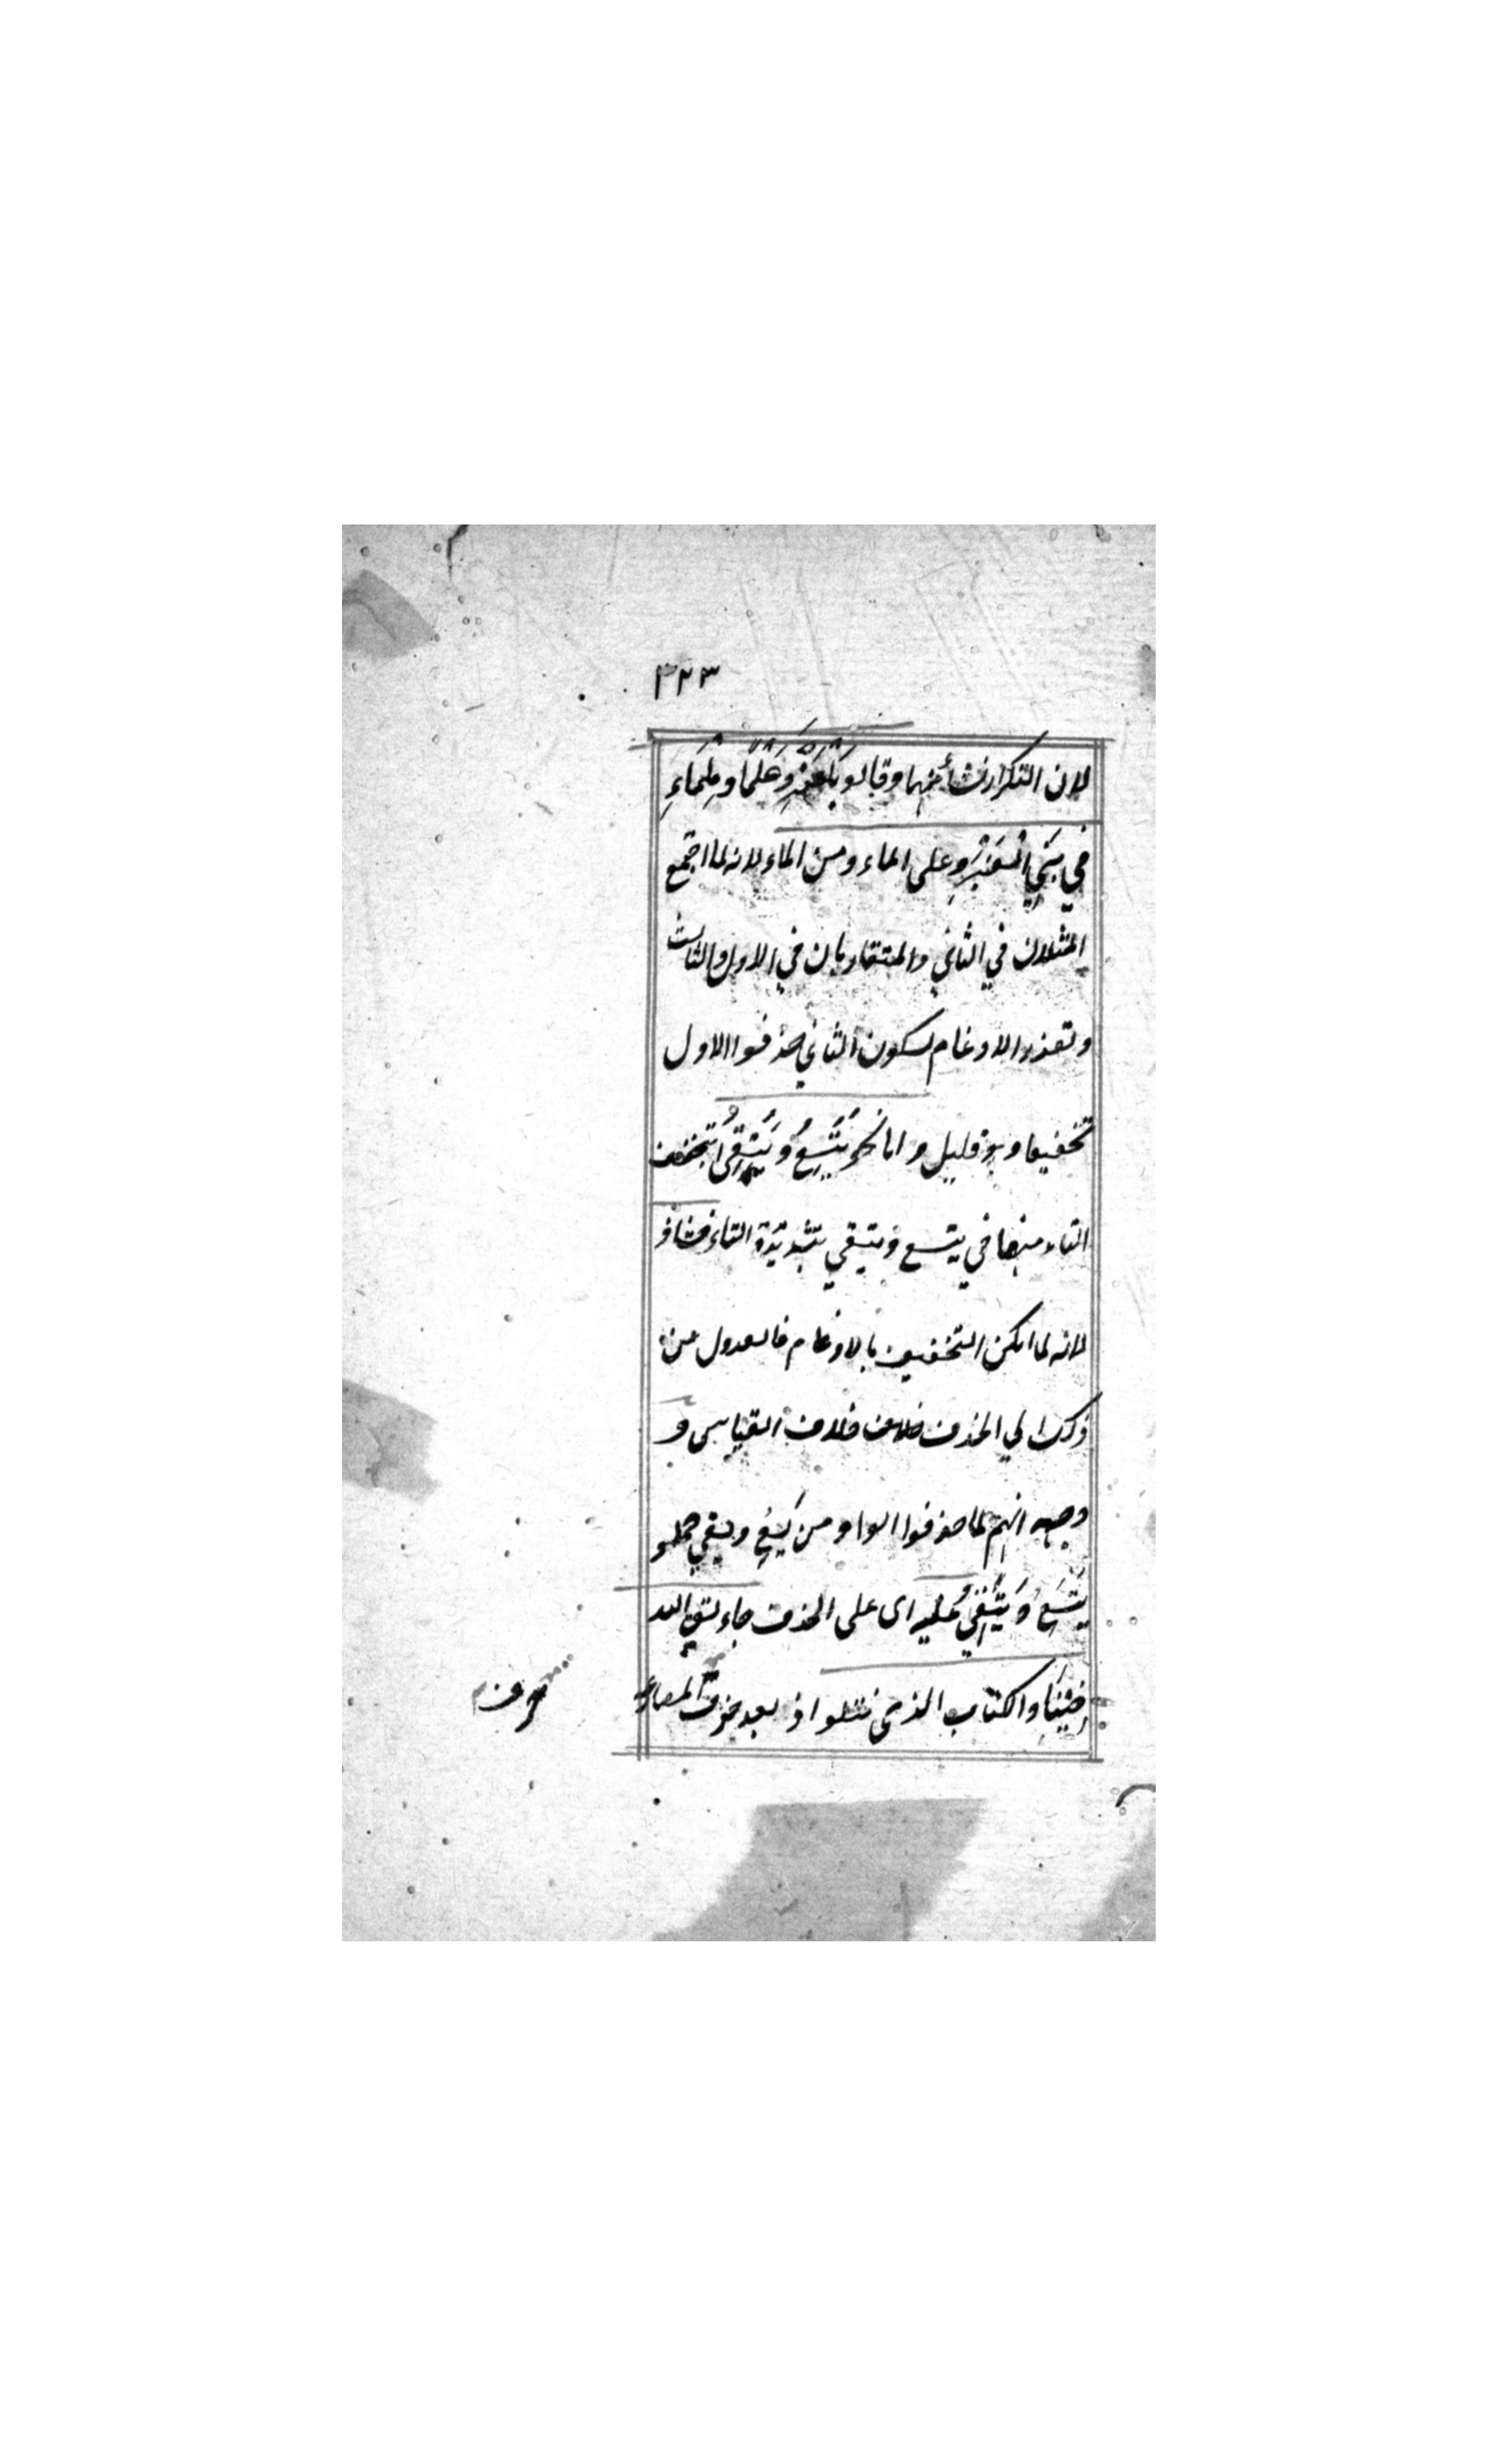 ٣٢٣
لان التكرار نشأ منهما وقالو بَلْعَنْبَرِ وَعَلْمَاءِ ومِلْمَاءِ
في بَنِي الْعَنْبَرِ وعلى الماء ومن الماء لانه لما اجتمع
المثلان في الثاني والمتقاربان في الاول والثالث
وتعذر الادغام لسكون الثاني حذفوا الاول
تخفيفا وهو قليل واما نحو يَتَسِعُ وَيَتَقِي بتخفيف
التاء منهما في يتسع ويتقي بتشديدة التاء فشاذ
لانه لما امكن التخفيف بالادغام فالعدول عن
ذلك الي الحذف خلاف خلاف القياس و
وجهه انهم لما حذفوا الواو من يَسَعُ ويقي حملو
يَتَسَعُ وَيَتَقِي عليه اى على الحذف جاء تق الله
فِينَا والكتاب الذي نتلوا اذ بعد حذف المضارع
حرف